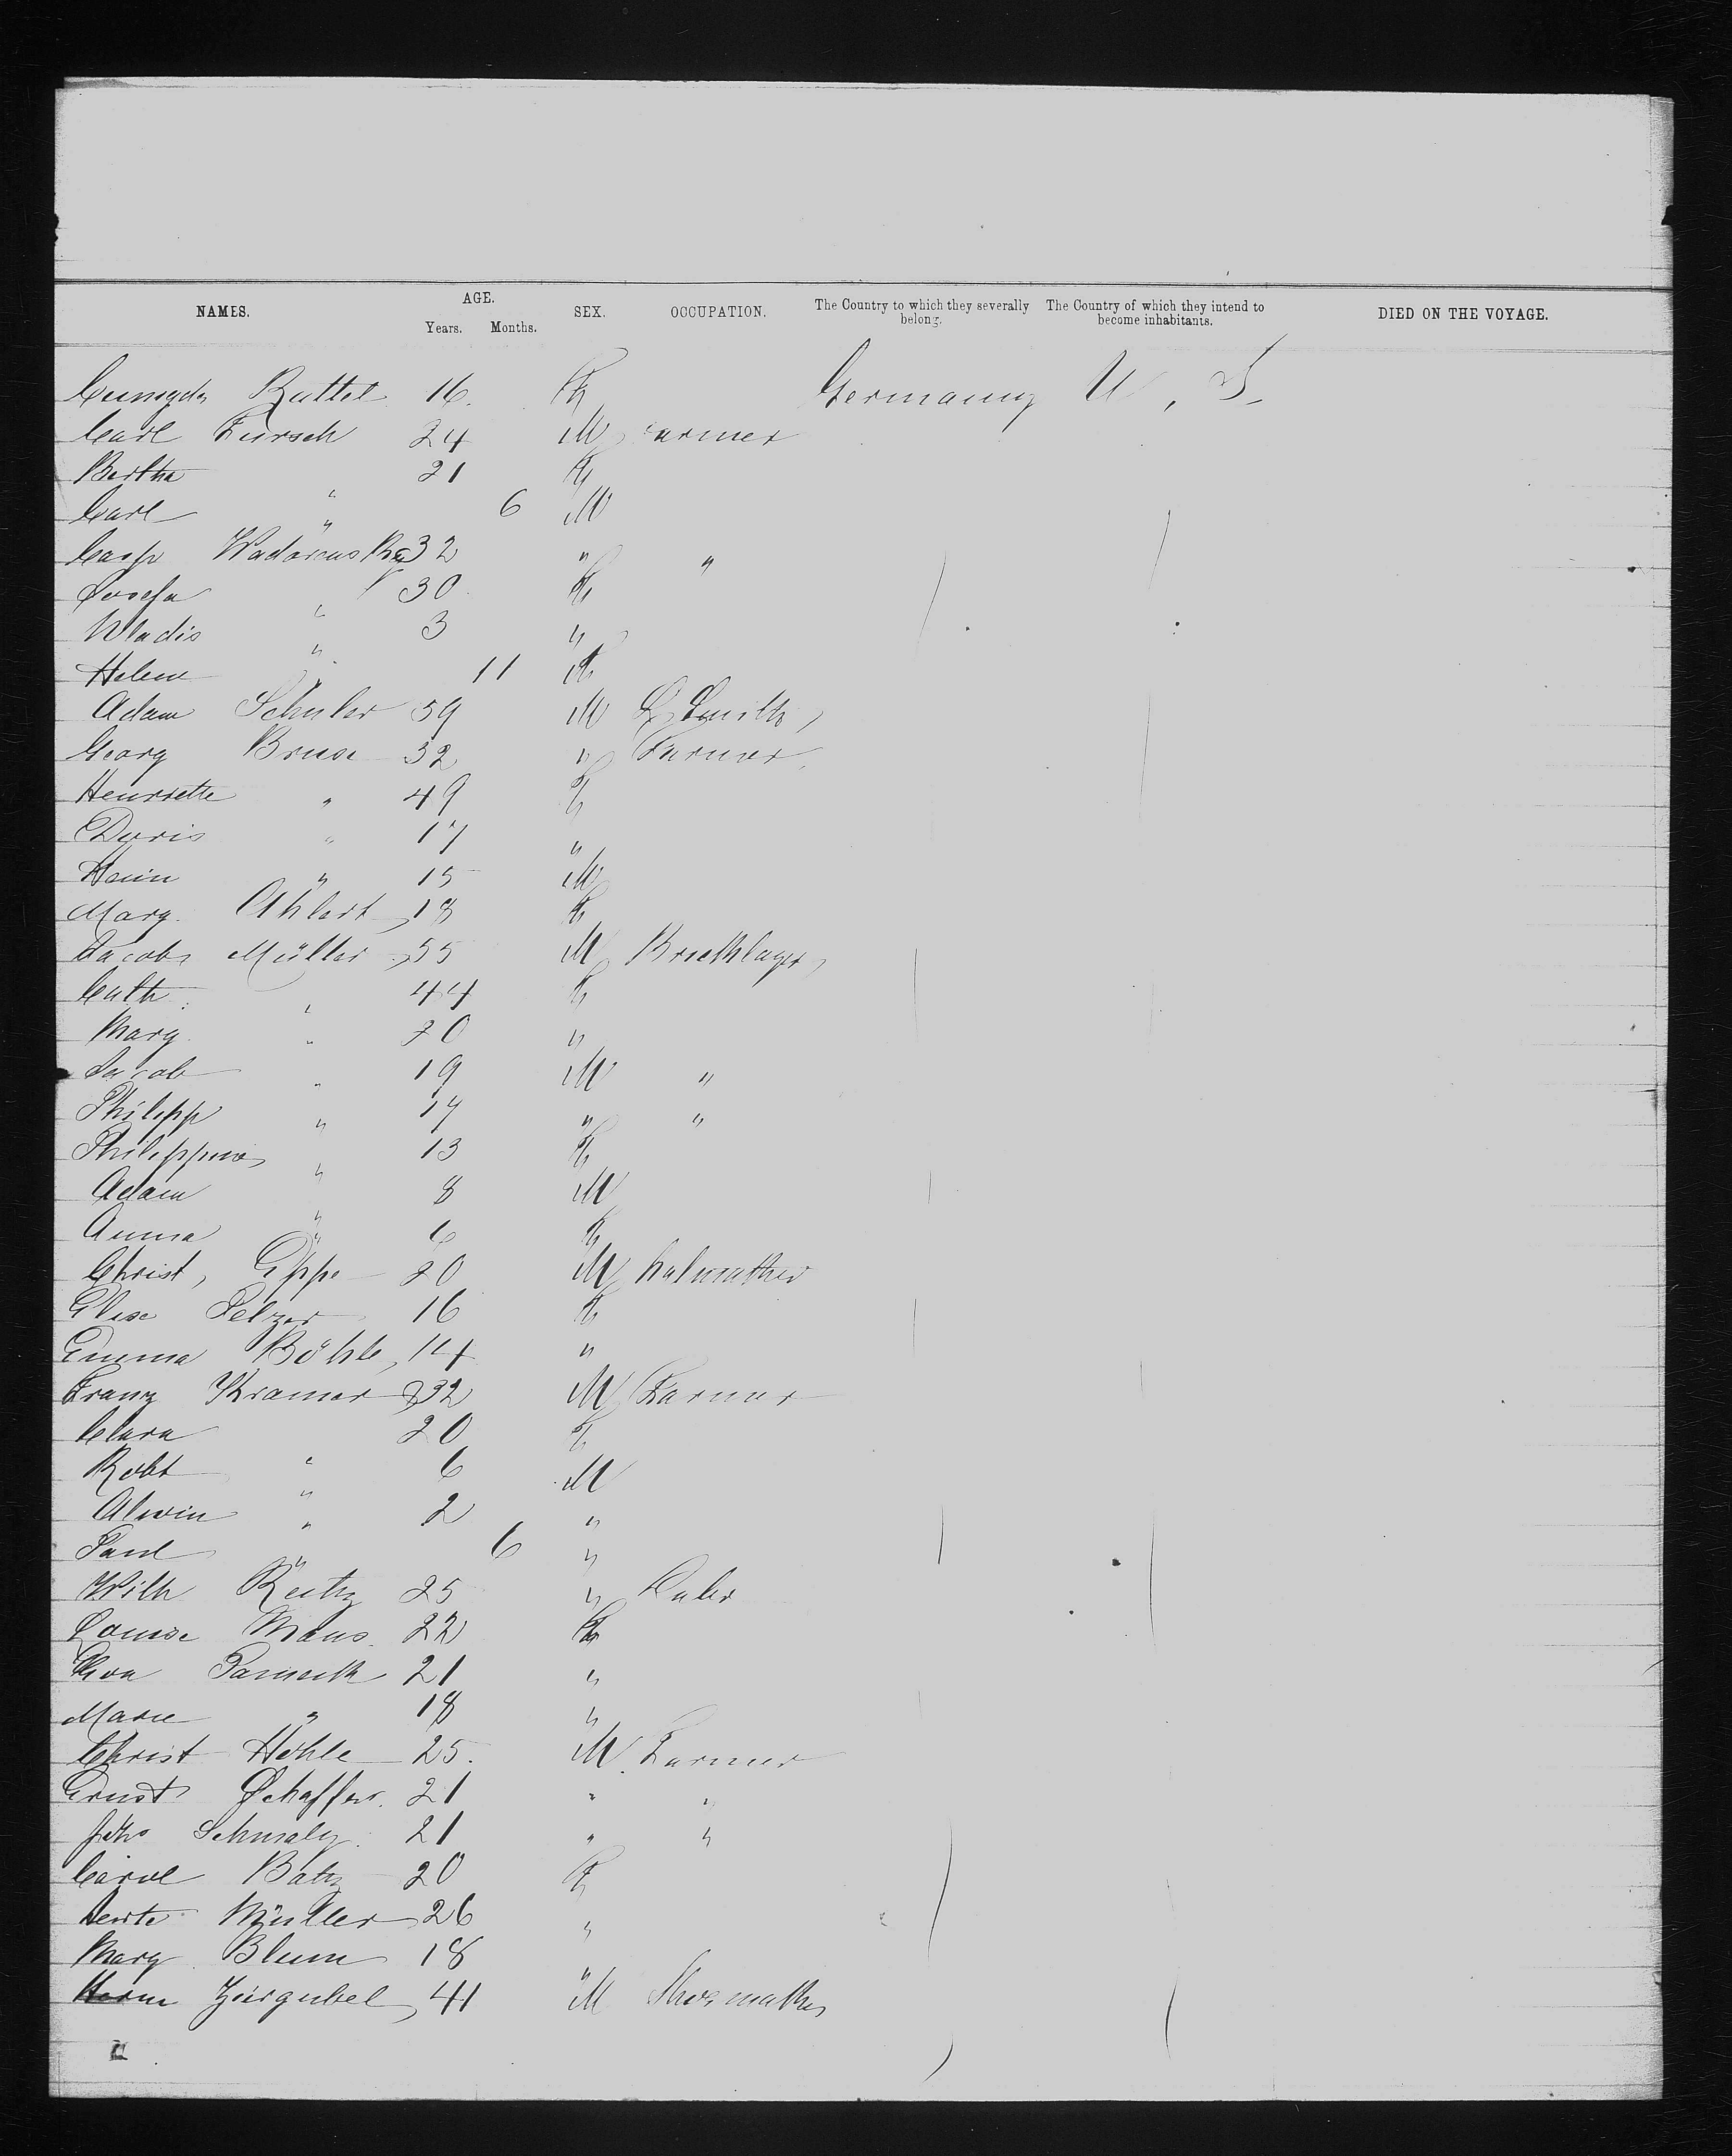 NAMES. AGE. Years. Months. SEX. OCCUPATION. The Country to which they severally belong. The Country of which they intend to become inhabitants. DIED ON THE VOYAGE.
Ruttel 16. F Germany U. S.
Carl Fursch 24 M Farmer
Bertha " 21 F
Carl " 6 M
Casp 32 " "
Josefa " 30 F
Wladis " 3 "
Helene " 11 F
Adam Schuler 59 M Smith
Georg Bruse 32 " Farmer
Henriette " 49 F
Doris " 17 "
Heinr " 15 M
Marg. Ahlert 18 F
Jacob Müller 55 M Bricklayer
Cath. " 44 F
Marg. " 20 "
Jacob " 19 M "
Philipp " 17 " "
Philippine " 13 F
Adam " 8 M
Anna " 6 F
Christ, Eppe 20 M
Elise Pelzer 16 F
Emma Böhle 14 "
Franz Kramer 32 M Farmer
Clara " 20 F
Robt " 6 M
Alwin " 2 "
Paul " 6 "
Wilh 25 "
Louise Maus 22 F
Eva 21 "
Marie " 18 "
Christ Höhle 25. M Farmer
Ernst Schaffer. 21 " "
Schmalz 21 " "
Carol Batz 20 F
Müller 26 "
Marg. Blum 18 "
Herm 41 M Shoemaker